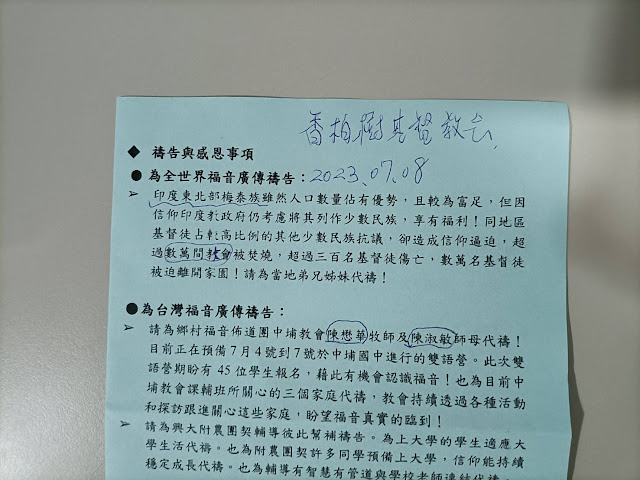 香柏樹基督教会
◆ 禱告與感恩事項
●為全世界福音廣傳禱告：2023.07.08
A 印度東北部梅泰族雖然人口數量佔有優勢，且較為富足，但因
信仰印度教政府仍考慮將其列作少數民族，享有福利！同地區
基督徒占較高比例的其他少數民族抗議，卻造成信仰逼迫，超
過數萬間教會被焚燒，超過三百名基督徒傷亡，數萬名基督徒
被迫離開家園！請為當地弟兄姊妹代禱！
●為台灣福音廣傳禱告：
A 請為鄉村福音佈道團中埔教會陳懋華牧師及陳淑敏師母代禱！
目前正在預備7月4號到7號於中埔國中進行的雙語營。此次雙
語營期盼有45位學生報名，藉此有機會認識福音！也為目前中
埔教會課輔班所關心的三個家庭代禱，教會持續透過各種活動
和探訪跟進關心這些家庭，盼望福音真實的臨到！
A 請為興大附農團契輔導彼此幫補禱告。為上大學的學生適應大
學生活代禱。也為附農團契許多同學預備上大學，信仰能持續
穩定成長代禱。也為輔導有智慧有管道與學校老師連結代禱。